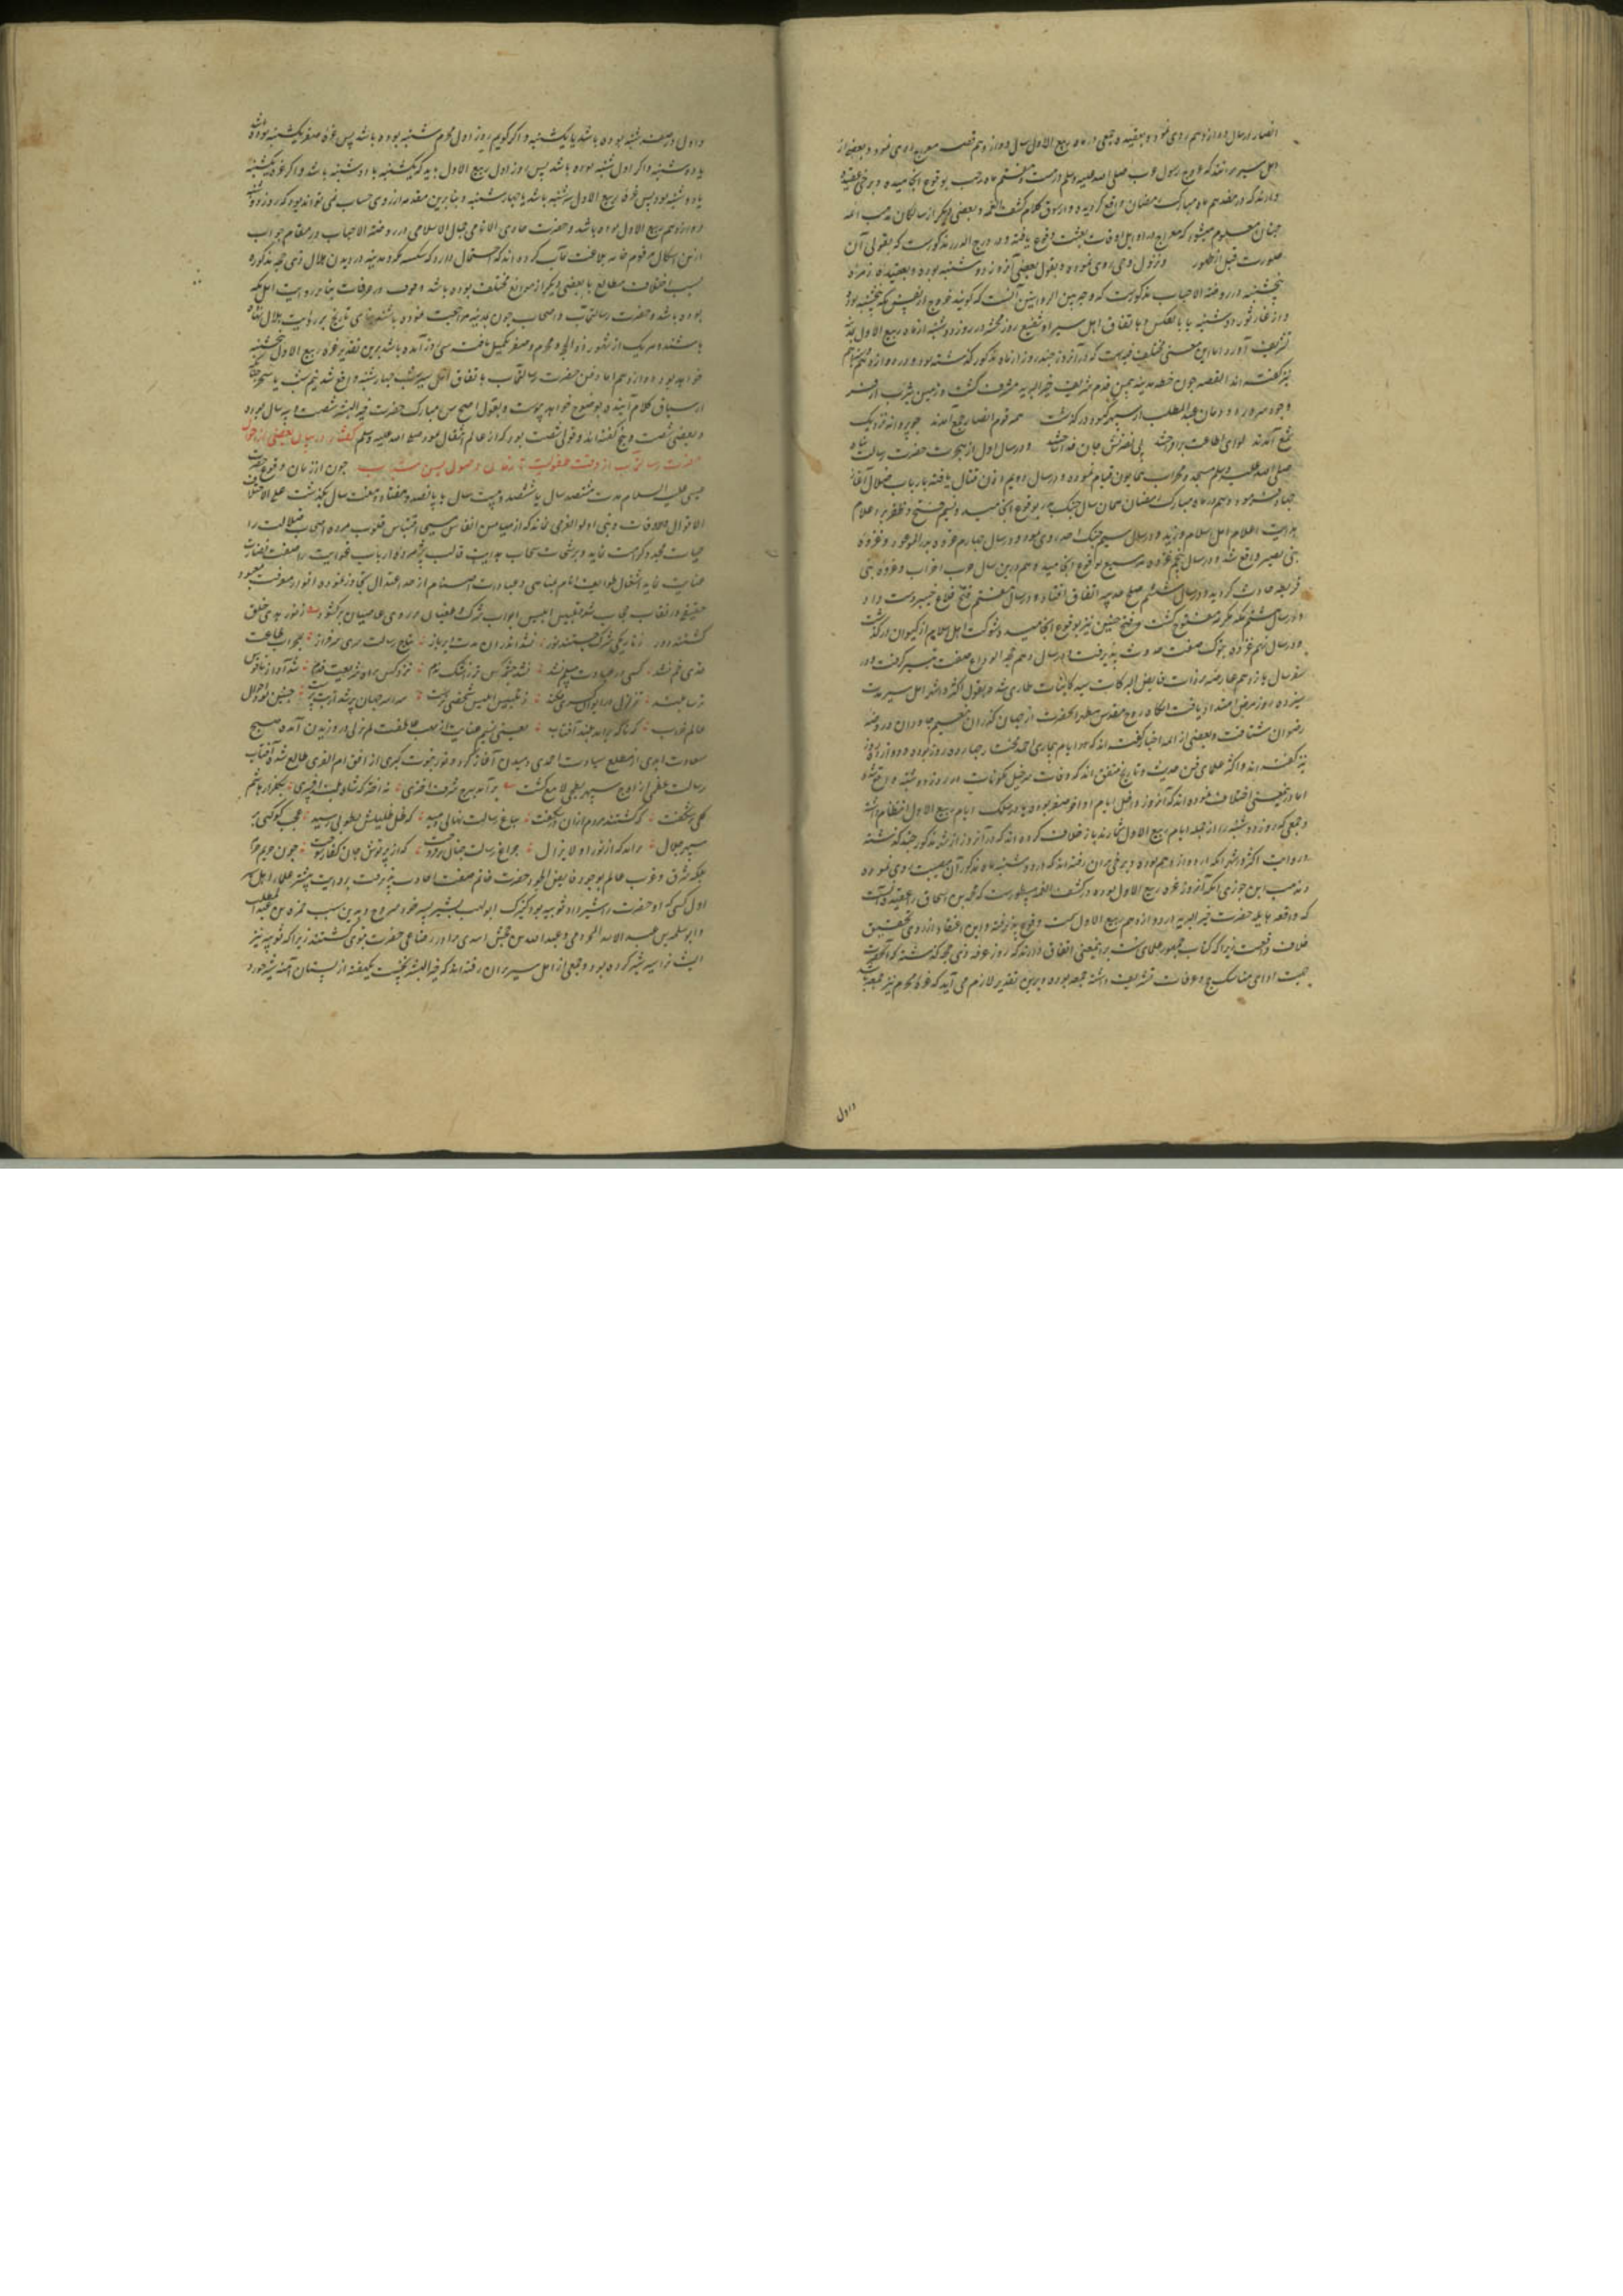 انصار در سال دوازدهم روی نمود و بعقیده جمعی در ماه ربیع الاول سال دوازدهم قصه معراج روی نمود و بعضی از
اهل سیر بر آنند که عروج رسول عرب صلی الله علیه وسلم در بیست و هفتم ماه رجب بوقوع انجامیده و برخی عقیده
دارند که در هفدهم ماه مبارک رمضان واقع گردیده و از سوق کلام کشف الغمه و بعضی دیگر از سالکان مذهب ائمه
چنان معلوم میشود که معراج در اوایل اوقات بعثت وقوع یافته و در درج الدرر مذکورست که بقولی آن
صورت قبل از ظهور و نزول وحی روی نموده و بقول بعضی آنروز دوشنبه بوده و بعقیده زمره
پنجشنبه و در روضة الاحباب مذکورست که وجه بین الروایتین آنست که گویند خروج از مکه پنجشنبه بود
و از غار ثور دوشنبه یا بالعکس و باتفاق اهل سیر شفیع روز محشر در روز دوشنبه از ماه ربیع الاول بمدینه
تشریف آورد اما درین معنی مختلفند که در آنروز چند روز از ماه مذکور گذشته بود و دوازدهم
نیز گفته اند القصه چون خطه مدینه بیمن قدم شریف خیر البریه مشرف گشت و زمین یثرب از فر
وجود سرور دودمان عبد المطلب از سپهر کبود درگذشت همه قوم انصار جمع آمدند چو پروانه نزدیک
شمع آمدند لوای اطاعت برافراختند پی نصرتش جان فدا ساختند و در سال اول از هجرت حضرت رسالت پناه
صلی الله علیه وسلم مسجد و محراب همایون قیام نموده و در سال دویم اذن قتال یافته با ارباب ضلال آغاز
جهاد فرمود و هم در ماه مبارک رمضان همان سال جنگ بدر بوقوع انجامید و نسیم فتح و ظفر بر اعلام
هدایت اعلام اهل اسلام وزید و در سال سیم جنگ احد روی نمود و در سال چهارم غزوه بدر الموعود و غزوه
بنی نضیر واقع شد و در سال پنجم غزوه مریسیع بوقوع انجامید و هم درین سال حرب احزاب و غزوه بنی
قریظه حادث گردید و در سال ششم صلح حدیبیه اتفاق افتاد و در سال هفتم فتح قلاع خیبر دست داد
و در سال هشتم مکه مکرمه مفتوح گشت و فتح حنین نیز بوقوع انجامید و شوکت اهل اسلام از کیوان درگذشت
و در سال نهم غزوه تبوک صفت حدوث پذیرفت و در سال دهم حجة الوداع صفت تیسیر گرفت و در
سفر سال یازدهم عارضه بر ذات فایض البرکات سید کاینات طاری شد و بقول اکثر و اشهر اهل سیر مدت
سیزده روز مرض امتداد یافت آنگاه روح مقدس مطهر آنحضرت از جهان گذران بنعیم جاودان و روضه
رضوان شتافت و بعضی از ائمه اخبار گفته اند که ایام بیماری احمد مختار چهارده روز بوده و دوازده روز
نیز گفته اند و اکثر علمای فن حدیث و تاریخ متفق اند که وفات سرخیل مکونات در روز دوشنبه واقع شد
اما درین معنی اختلاف نموده اند که آنروز داخل ایام اواخر صفر بوده یا در سلک ایام ربیع الاول انتظام داشته
و جمعی که روز دوشنبه را از جمله ایام ربیع الاول شمارند باز خلاف کرده اند که در آنروز از شهر مذکور چند گذشته
و روایت اکثر و اشهر آنکه دوازدهم بوده و برخی بران رفته اند که در دوشنبه ماه مذکور آن مصیبت روی نموده
و مذهب ابن جوزی آنکه آنروز غره ربیع الاول بوده و در کشف الغمه مسطورست که محمد بن اسحاق را عقیده آنست
که واقعه هایله حضرت خیر البریه در دوازدهم ربیع الاول سمت وقوع پذیرفته و این اعتقاد از روی تحقیق
خلاف واقعست زیرا که کتاب جمهور علمای سنت برین معنی اتفاق دارند که روز عرفه ذی حجه گذشته که آنحضرت
جهت ادای مناسک حج بعرفات تشریف داشته جمعه بوده و برین تقدیر لازم می آید که غره محرم نیز جمعه باشد
و اول
و اول صفر شنبه بوده باشد یا یکشنبه و اگر گویم روز اول محرم شنبه بوده باشد پس غره صفر یکشنبه بوده باشد
یا دوشنبه و اگر اول شنبه بوده باشد پس روز اول ربیع الاول باید که یکشنبه یا دوشنبه باشد و اگر غره یکشنبه
یا دوشنبه بود پس غره ربیع الاول سه شنبه باشد یا چهارشنبه و بنابرین مقدمه از روی حساب نمی تواند بود که روز دوشنبه
دوازدهم ربیع الاول بوده باشد و حضرت حاوی الانامی جمال الاسلامی در روضة الاحباب در مقام جواب
ازین اشکال مرقوم خامه بلاغت مآب کرده اند که احتمال دارد که سکنه مکه و مدینه در دیدن هلال ذی حجه مذکوره
بسبب اختلاف مطالع یا بعضی دیگر از موانع مختلف بوده باشد و وقوف در عرفات بنابر رویت اهل مکه
بوده باشد و حضرت رسالتمآب و اصحاب چون بمدینه مراجعت نموده باشند بنای تاریخ بر رویت هلال نهاده
باشند و هر یک از شهور ذی الحجه و محرم و صفر تکمیل یافته سی روز آمده باشد برین تقدیر غره ربیع الاول پنجشنبه
خواهد بود و دوازدهم اما دفن حضرت رسالتمآب باتفاق اهل سیر شب چهارشنبه واقع شد نیم شب یا سحر چنانکه
از سیاق کلام آینده بوضوح خواهد پیوست و بقول اصح سن مبارک حضرت خیر البشر شصت و سه سال بوده
و بعضی شصت و پنج گفته اند و قولی شصت بود که از عالم انتقال نمود صلی الله علیه وسلم گفتار در بیان بعضی از احوال
حضرت رسالتمآب از وقت طفولیت تا زمان وصول بسن شباب چون از زمان وقوع حضرت
عیسی علیه السلام مدت ششصد سال یا ششصد و بیست سال یا پانصد و هفتاد و هفت سال بگذشت علی اختلاف
الاقوال والاوقات و نبی اولوالعزمی نماند که از میامن انفاس مسیحی اقتباس قلوب مرده اصحاب ضلالت را
حیات مجدد کرامت نماید و برشحات سحاب هدایت قالب پژمرده ارباب غوایت را صفت نضارت
عنایت نماید اشتغال طوایف انام بمناهی و عبادت اصنام از حد اعتدال تجاوز نموده انوار معرفت معبود
حقیقی در نقاب حجاب شد تلبیس ابلیس ابواب شرک و طغیان بر روی عاصیان برگشود ز نور هدی خلق
گشتند دور ز تاریکی شرک جستند نور نشد اندران مدت دیر باز بتاج رسالت سری سرفراز بمحراب طاعت
قدی خم نشد کسی در عبادت مسلم نشد نشد چشم کس تر ز اشک ندم نزد کس براه شریعت قدم شد آواز ناقوس
ترسا بلند تزلزل در ایوان کسری فکند ز تلبیس ابلیس شخصی نرست سراسر جهان پر شد از بت پرست چنین بود احوال
عالم خراب که ناگه برآمد بلند آفتاب یعنی نسیم عنایت از مهب عاطفت لم یزلی در وزیدن آمده صبح
سعادت ابدی از مطلع سیادت احمدی دمیدن آغاز کرد و نور نبوت کبری از افق ام القری طالع شده آفتاب
رسالت عظمی از اوج سپهر بطحی لامع گشت برآمد ببرج شرف اختری نه اختر که شاه بلند افسری بگلزار هاشم
گلی برشگفت که گشتند مردم ازان در شگفت بباغ رسالت نهالی دمید که ظل ظلیلش بطوبی رسید عجب کوکبی بر
سپهر جلال برآمد که از نور او لایزال چراغ رسالت چنان برفروخت که از پرتوش جان کفار سوخت چون حریم حرم
بلکه شرق و غرب عالم بوجود فایض الجود حضرت خاتم صفت اضاءت پذیرفت بروایت بیشتر علماء اهل سیر
اول کسی که او حضرت را شیر داد ثویبه بود کنیزک ابولهب بشیر پسر خود مسروح و بدین سبب حمزه بن عبد المطلب
و ابوسلمه بن عبد الاسد المخزومی و عبد الله بن جحش اسدی برادر رضاعی حضرت نبوی گشتند زیرا که ثویبه نیز
ایشانرا سیر شیر کرده بود و جمعی از اهل سیر بران رفته اند که خیر البشر نخست یکهفته از پستان آمنه شیر خورد